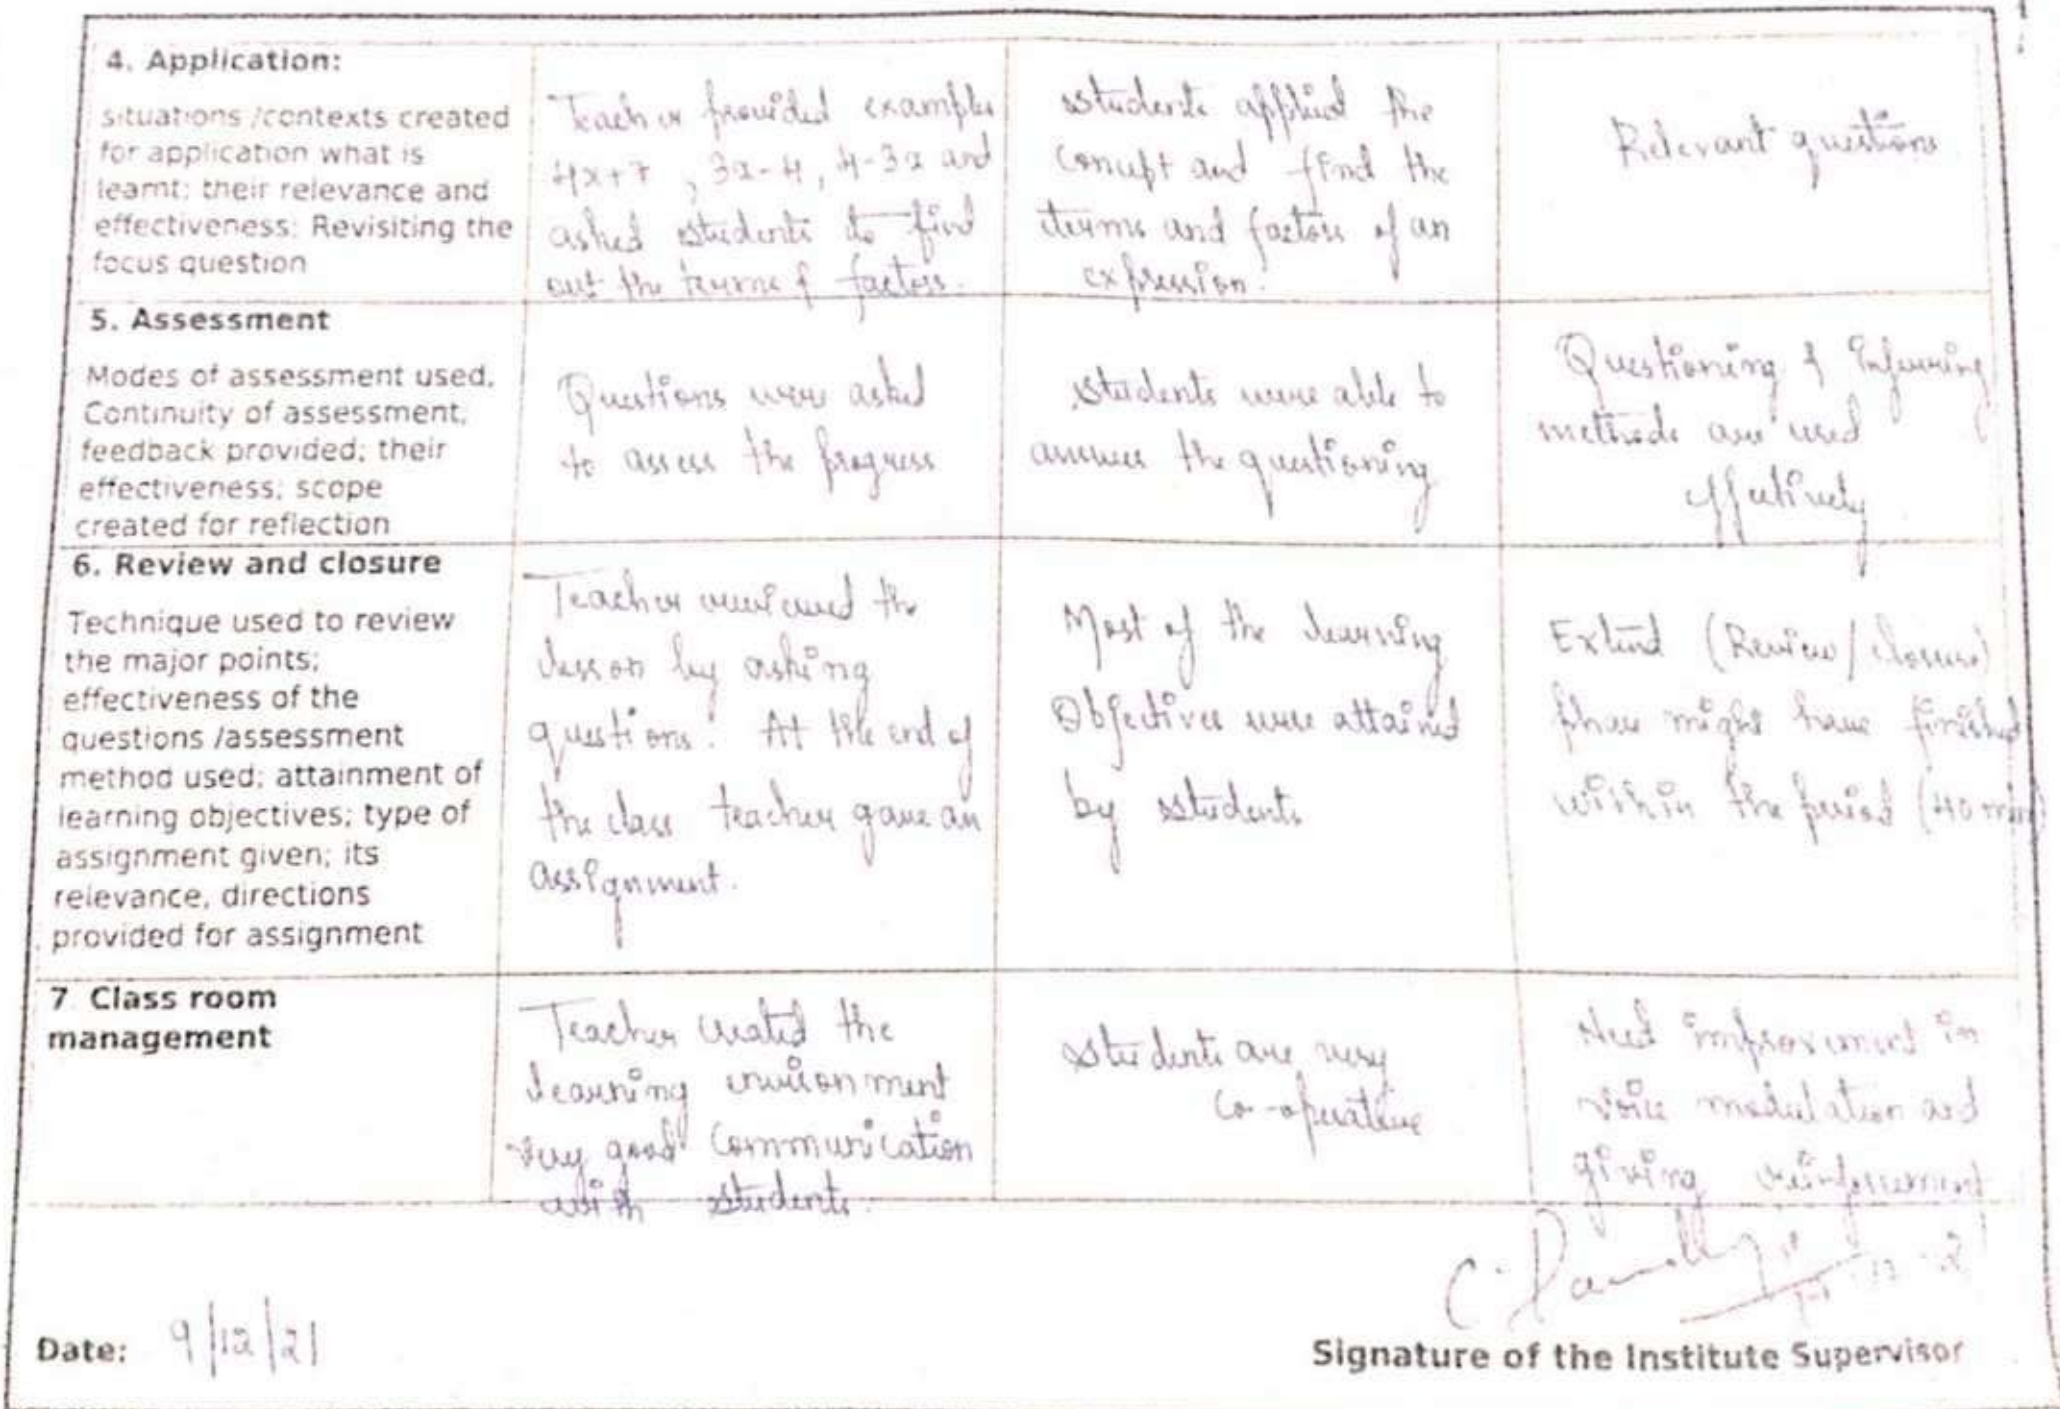 4. Application:
situations /contexts created
for application what is
learnt; their relevance and
effectiveness; Revisiting the
focus question
Teacher provided examples
4x+7 , 3x-4, 4-3x and
asked students to find
out the terms & factors.
students applied the
concept and find the
terms and factors of an
expression.
Relevant questions
5. Assessment
Modes of assessment used,
Continuity of assessment,
feedback provided; their
effectiveness; scope
created for reflection
Questions were asked
to assess the progress
students were able to
answer the questioning
Questioning & Inferring
methods are used
effectively
6. Review and closure
Technique used to review
the major points;
effectiveness of the
questions /assessment
method used; attainment of
learning objectives; type of
assignment given; its
relevance, directions
provided for assignment
Teacher reviewed the
lesson by asking
questions. At the end of
the class teacher gave an
assignment.
Most of the learning
Objectives were attained
by students
Extend (Review/closure)
phase might have finished
within the period (40 min)
7 Class room
management
Teacher created the
learning environment
very good communication
with students.
students are very
co-operative
Need improvement in
voice modulation and
giving reinforcement
Date: 9/12/21
Signature of the Institute Supervisor